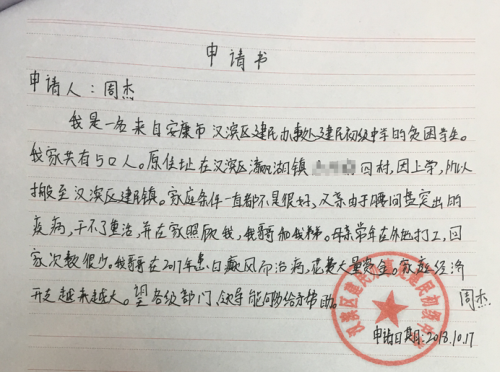 申请书
申请人：周杰
我是一名来自安康市汉滨区建民办事处建民初级中学的贫困学生。
我家共有5口人。原住址在汉滨区瀛湖镇 村，因上学，所以
搬至汉滨区建民镇。家庭条件一直都不是很好，父亲由于腰间盘突出的
疾病，干不了重活，并在家照顾我，我哥和我妹。母亲常年在外地打工，回
家次数很少。我哥在2017年患白癜风而治病，花费大量资金。家庭经济
开支越来越大。望各级部门、领导能够给予帮助。
周杰
申请日期：2018.10.17
汉滨区建民办事处建民初级中学